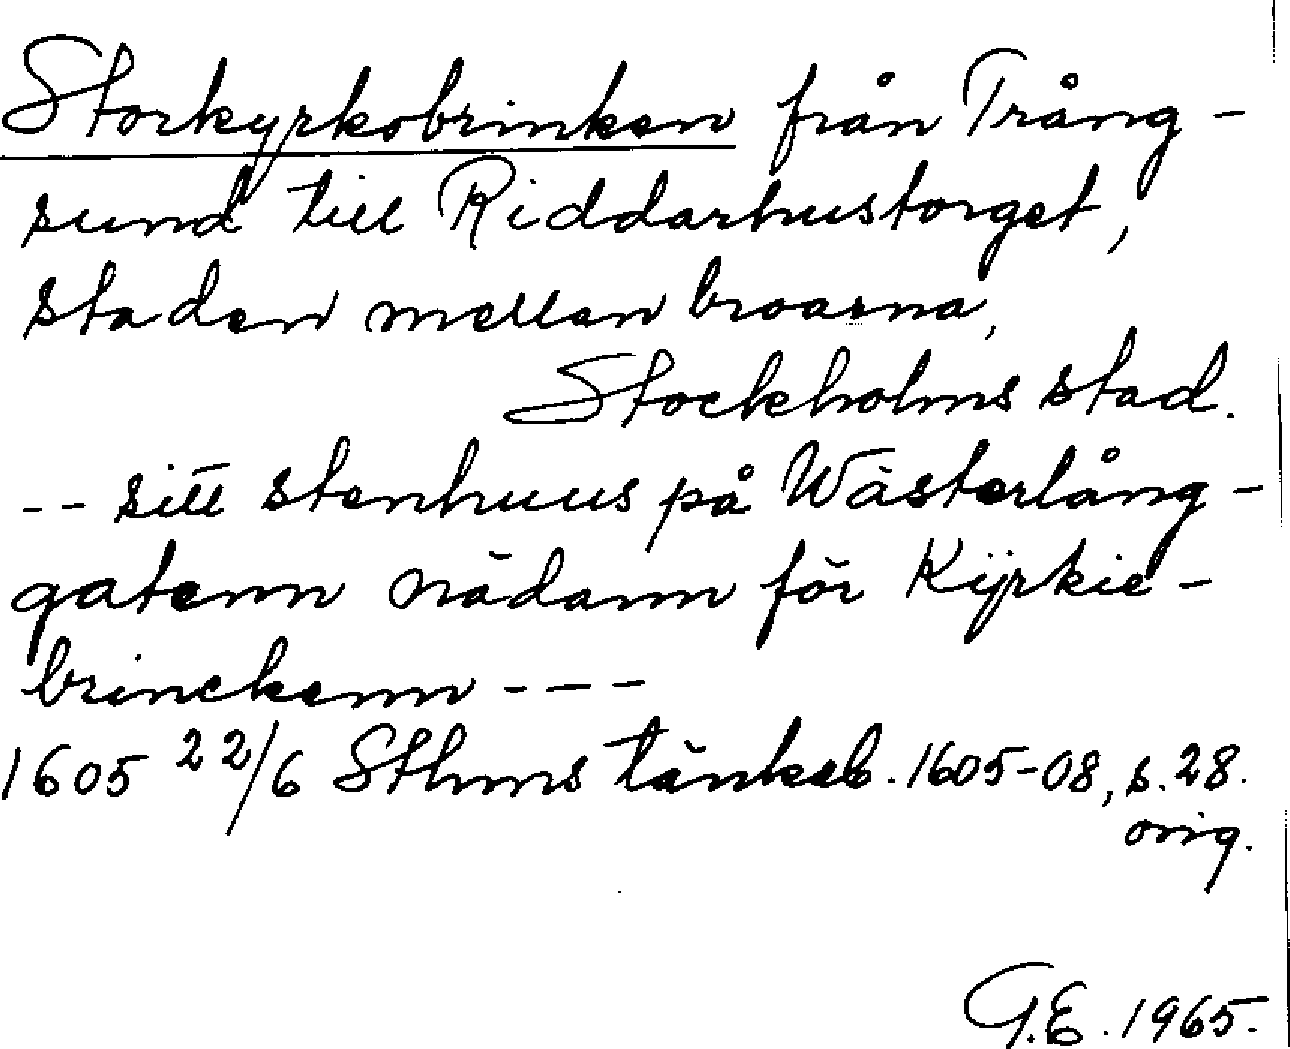 Storkyrkobrinken från Trång-
sund till Riddarhustorget,
staden mellan broarna,
Stockholms stad.
-- sitt stenhuus på Wästerlång-
gatenn nädann för Kÿrkie-
brinckenn ---
1605 22/6 Sthms tänkeb. 1605-08, s. 28.
orig.
G.E. 1965.